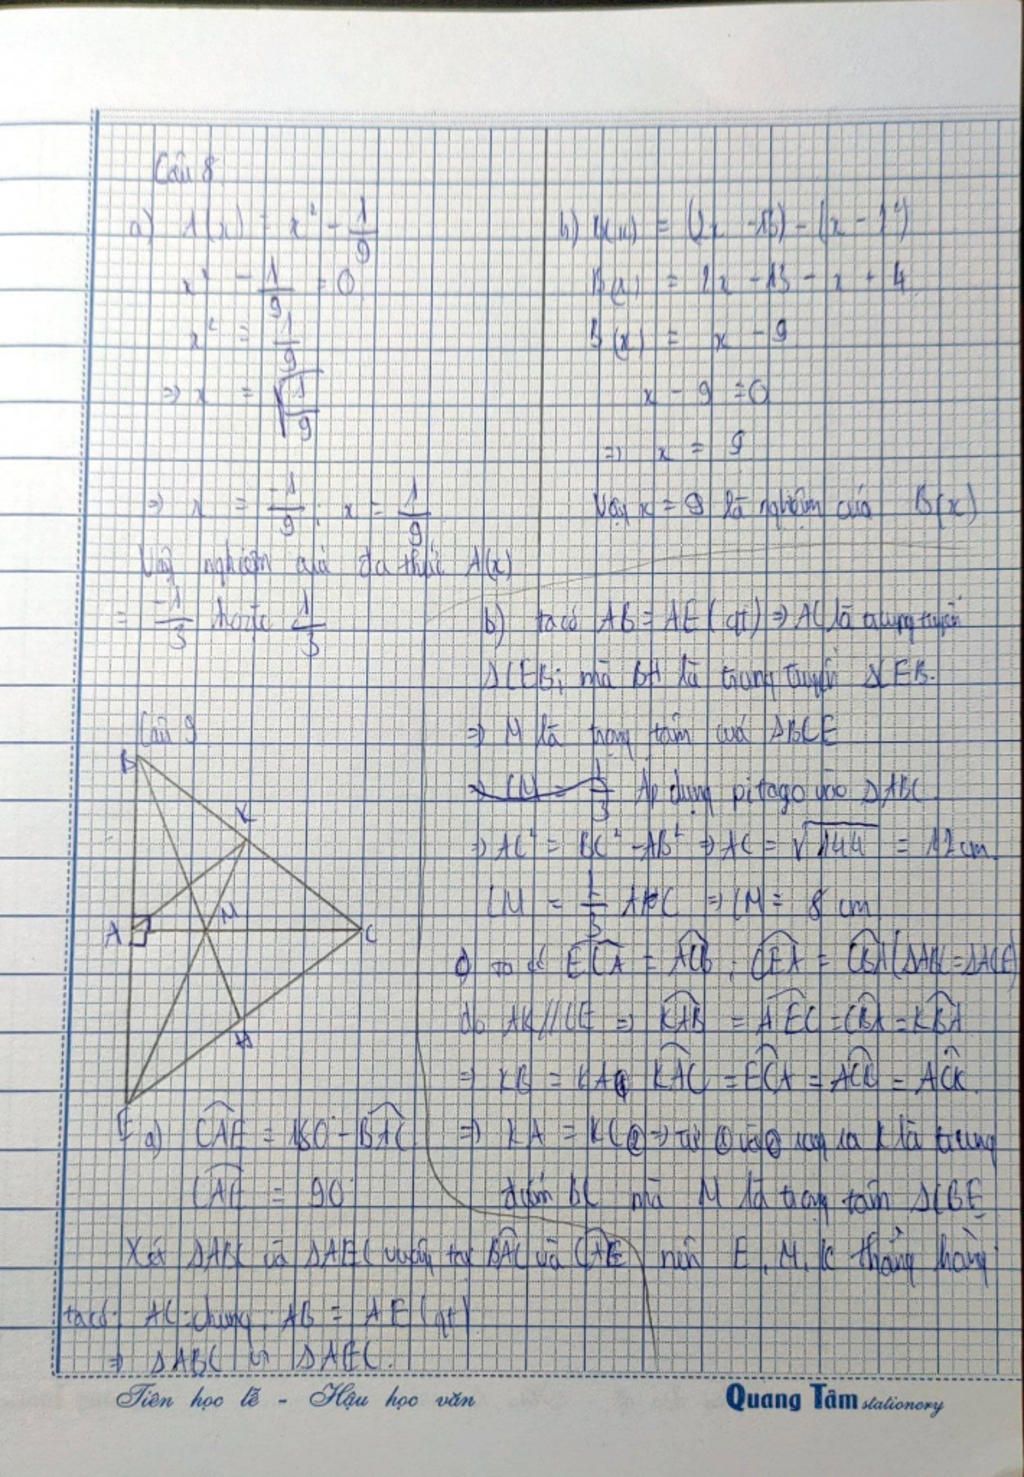 Câu 8
a) A(x) = x² - 1/9
x² - 1/9 = 0
x² = 1/9
=> x = √(1/9)
=> x = -1/9 ; x = 1/9
Vậy nghiệm của đa thức A(x)
= -1/3 hoặc 1/3
b) B(x) = (2x - 13) - (x - 4)
B(x) = 2x - 13 - x + 4
B(x) = x - 9
x - 9 = 0
=> x = 9
Vậy x = 9 là nghiệm của B(x)
Câu 9
B
K
A
M
C
H
E
a) CAE = 180° - BAC
CAE = 90°
Xét ΔABC và ΔAEC vuông tại BAC và CAE
ta có: AC: chung ; AB = AE (gt)
=> ΔABC = ΔAEC.
b) ta có AB = AE (gt) => AC là trung tuyến
ΔCEB; mà BH là trung tuyến ΔCEB.
=> M là trọng tâm của ΔBCE
Áp dụng pitago vào ΔABC
=> AC² = BC² - AB² => AC = √144 = 12 cm.
CM = 2/3 AC => CM = 8 cm
c) ta có ECA = ACB ; CEA = CBA (ΔABC = ΔACE)
do AK // CE => KAB = AEC = CBA = KBA
=> KB = KA ① KAC = ECA = ACB = ACK.
=> KA = KC ② => từ ① và ② suy ra K là trung
điểm BC mà M là trọng tâm ΔCBE
nên E, M, K thẳng hàng
Tiên học lễ - Hậu học văn
Quang Tâm stationery